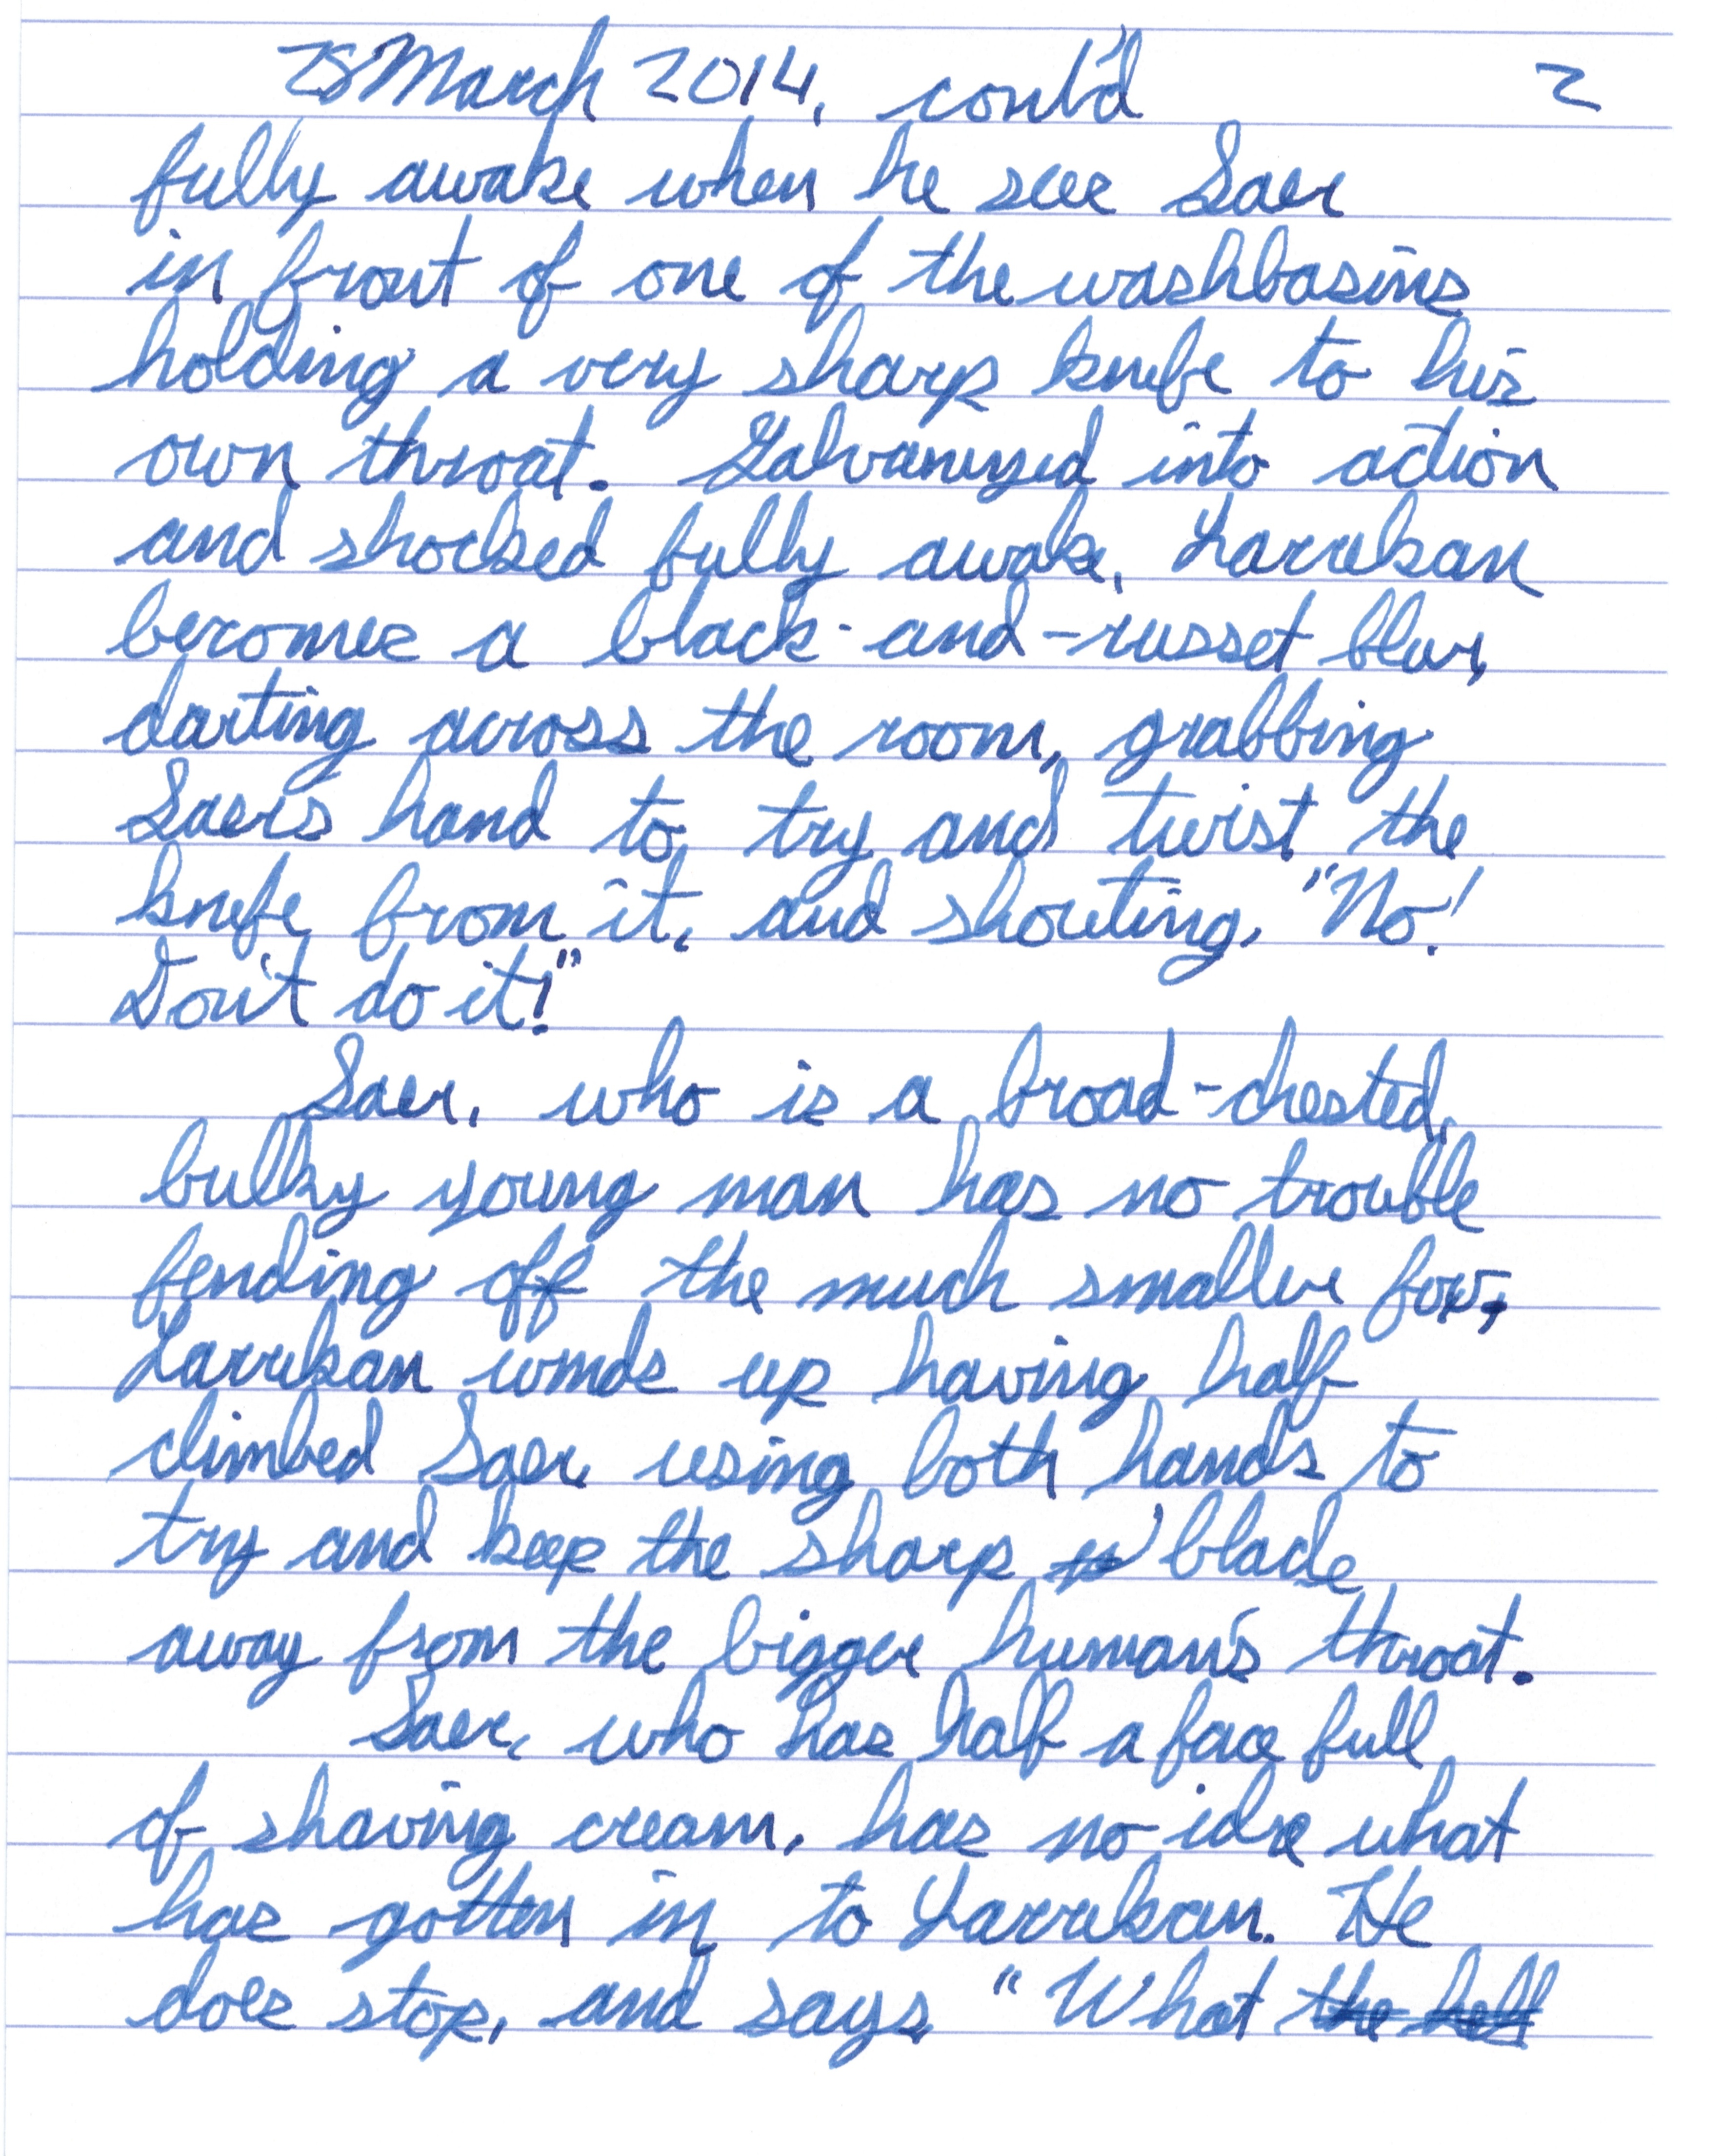 28 March 2014, cont'd 2
fully awake when he see Saer
in front of one of the washbasins
holding a very sharp knife to his
own throat. Galvanized into action
and shocked fully awake, Larrikan
becomes a black-and-russet blur,
darting across the room, grabbing
Saer's hand to try and twist the
knife from it, and shouting, "No!
Don't do it!"
Saer, who is a broad-chested,
bulky young man has no trouble
fending off the much smaller fox;
Larrikan winds up having half
climbed Saer, using both hands to
try and keep the sharp blade
away from the bigger human's throat.
Saer, who has half a face full
of shaving cream, has no idea what
has gotten in to Larrikan. He
does stop, and says, "What the hell